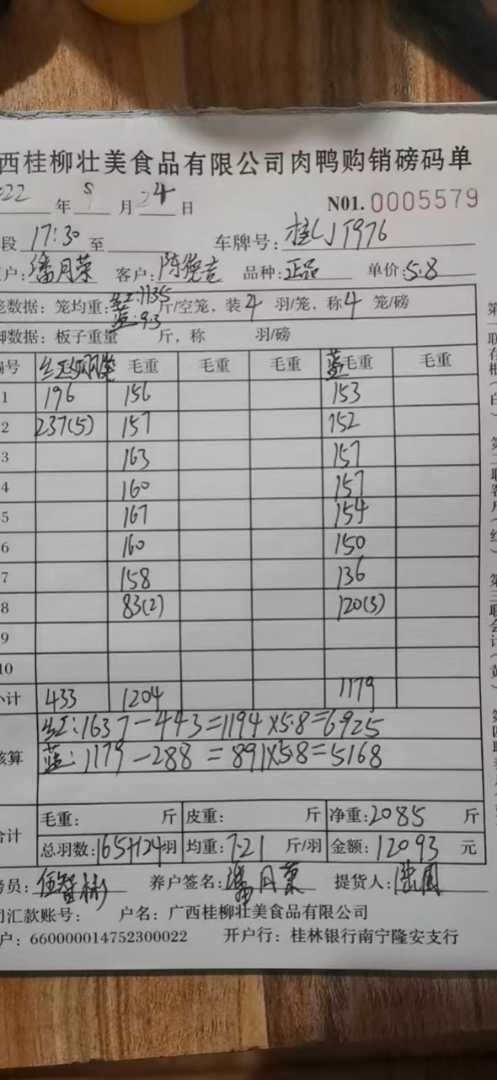 西桂柳壮美食品有限公司肉鸭购销磅码单
022 年 9 月 24 日 N01. 0005579
段 17:30 至 车牌号: 桂
户: 潘月荣 客户: 品种: 正品 单价: 5.8
笼数据: 笼均重: 红: 11.35 蓝: 9.3 斤/空笼, 装 4 羽/笼, 称 4 笼/磅
脚数据: 板子重量 斤, 称 羽/磅
编号 毛重 毛重 毛重 蓝 毛重 毛重
1 196 156 153
2 237(5) 157 152
3 163 157
4 160 157
5 167 154
6 160 150
7 158 136
8 83(2) 120(3)
9
10
小计 433 1204 1179
核算 红: 1637-443=1194×5.8=6925
蓝: 1179-288=891×5.8=5168
合计 毛重: 斤 皮重: 斤 净重: 2085 斤
总羽数: 165+124 羽 均重: 7.21 斤/羽 金额: 12093 元
员: 养户签名: 潘月荣 提货人:
司汇款账号: 户名: 广西桂柳壮美食品有限公司
户: 660000014752300022 开户行: 桂林银行南宁隆安支行